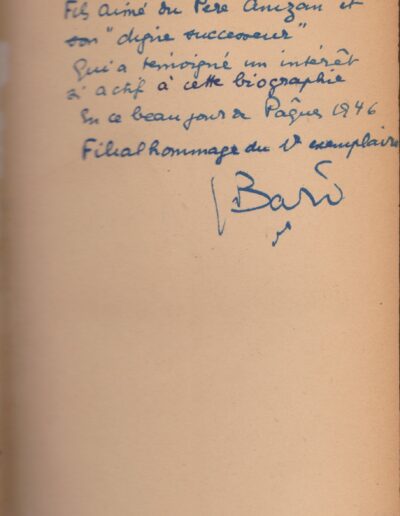 Fils aimé du Père Anizan et
son "digne successeur"
Qui a témoigné un intérêt
si actif à cette biographie
En ce beau jour de Pâques 1946
Filial hommage du 1er exemplaire